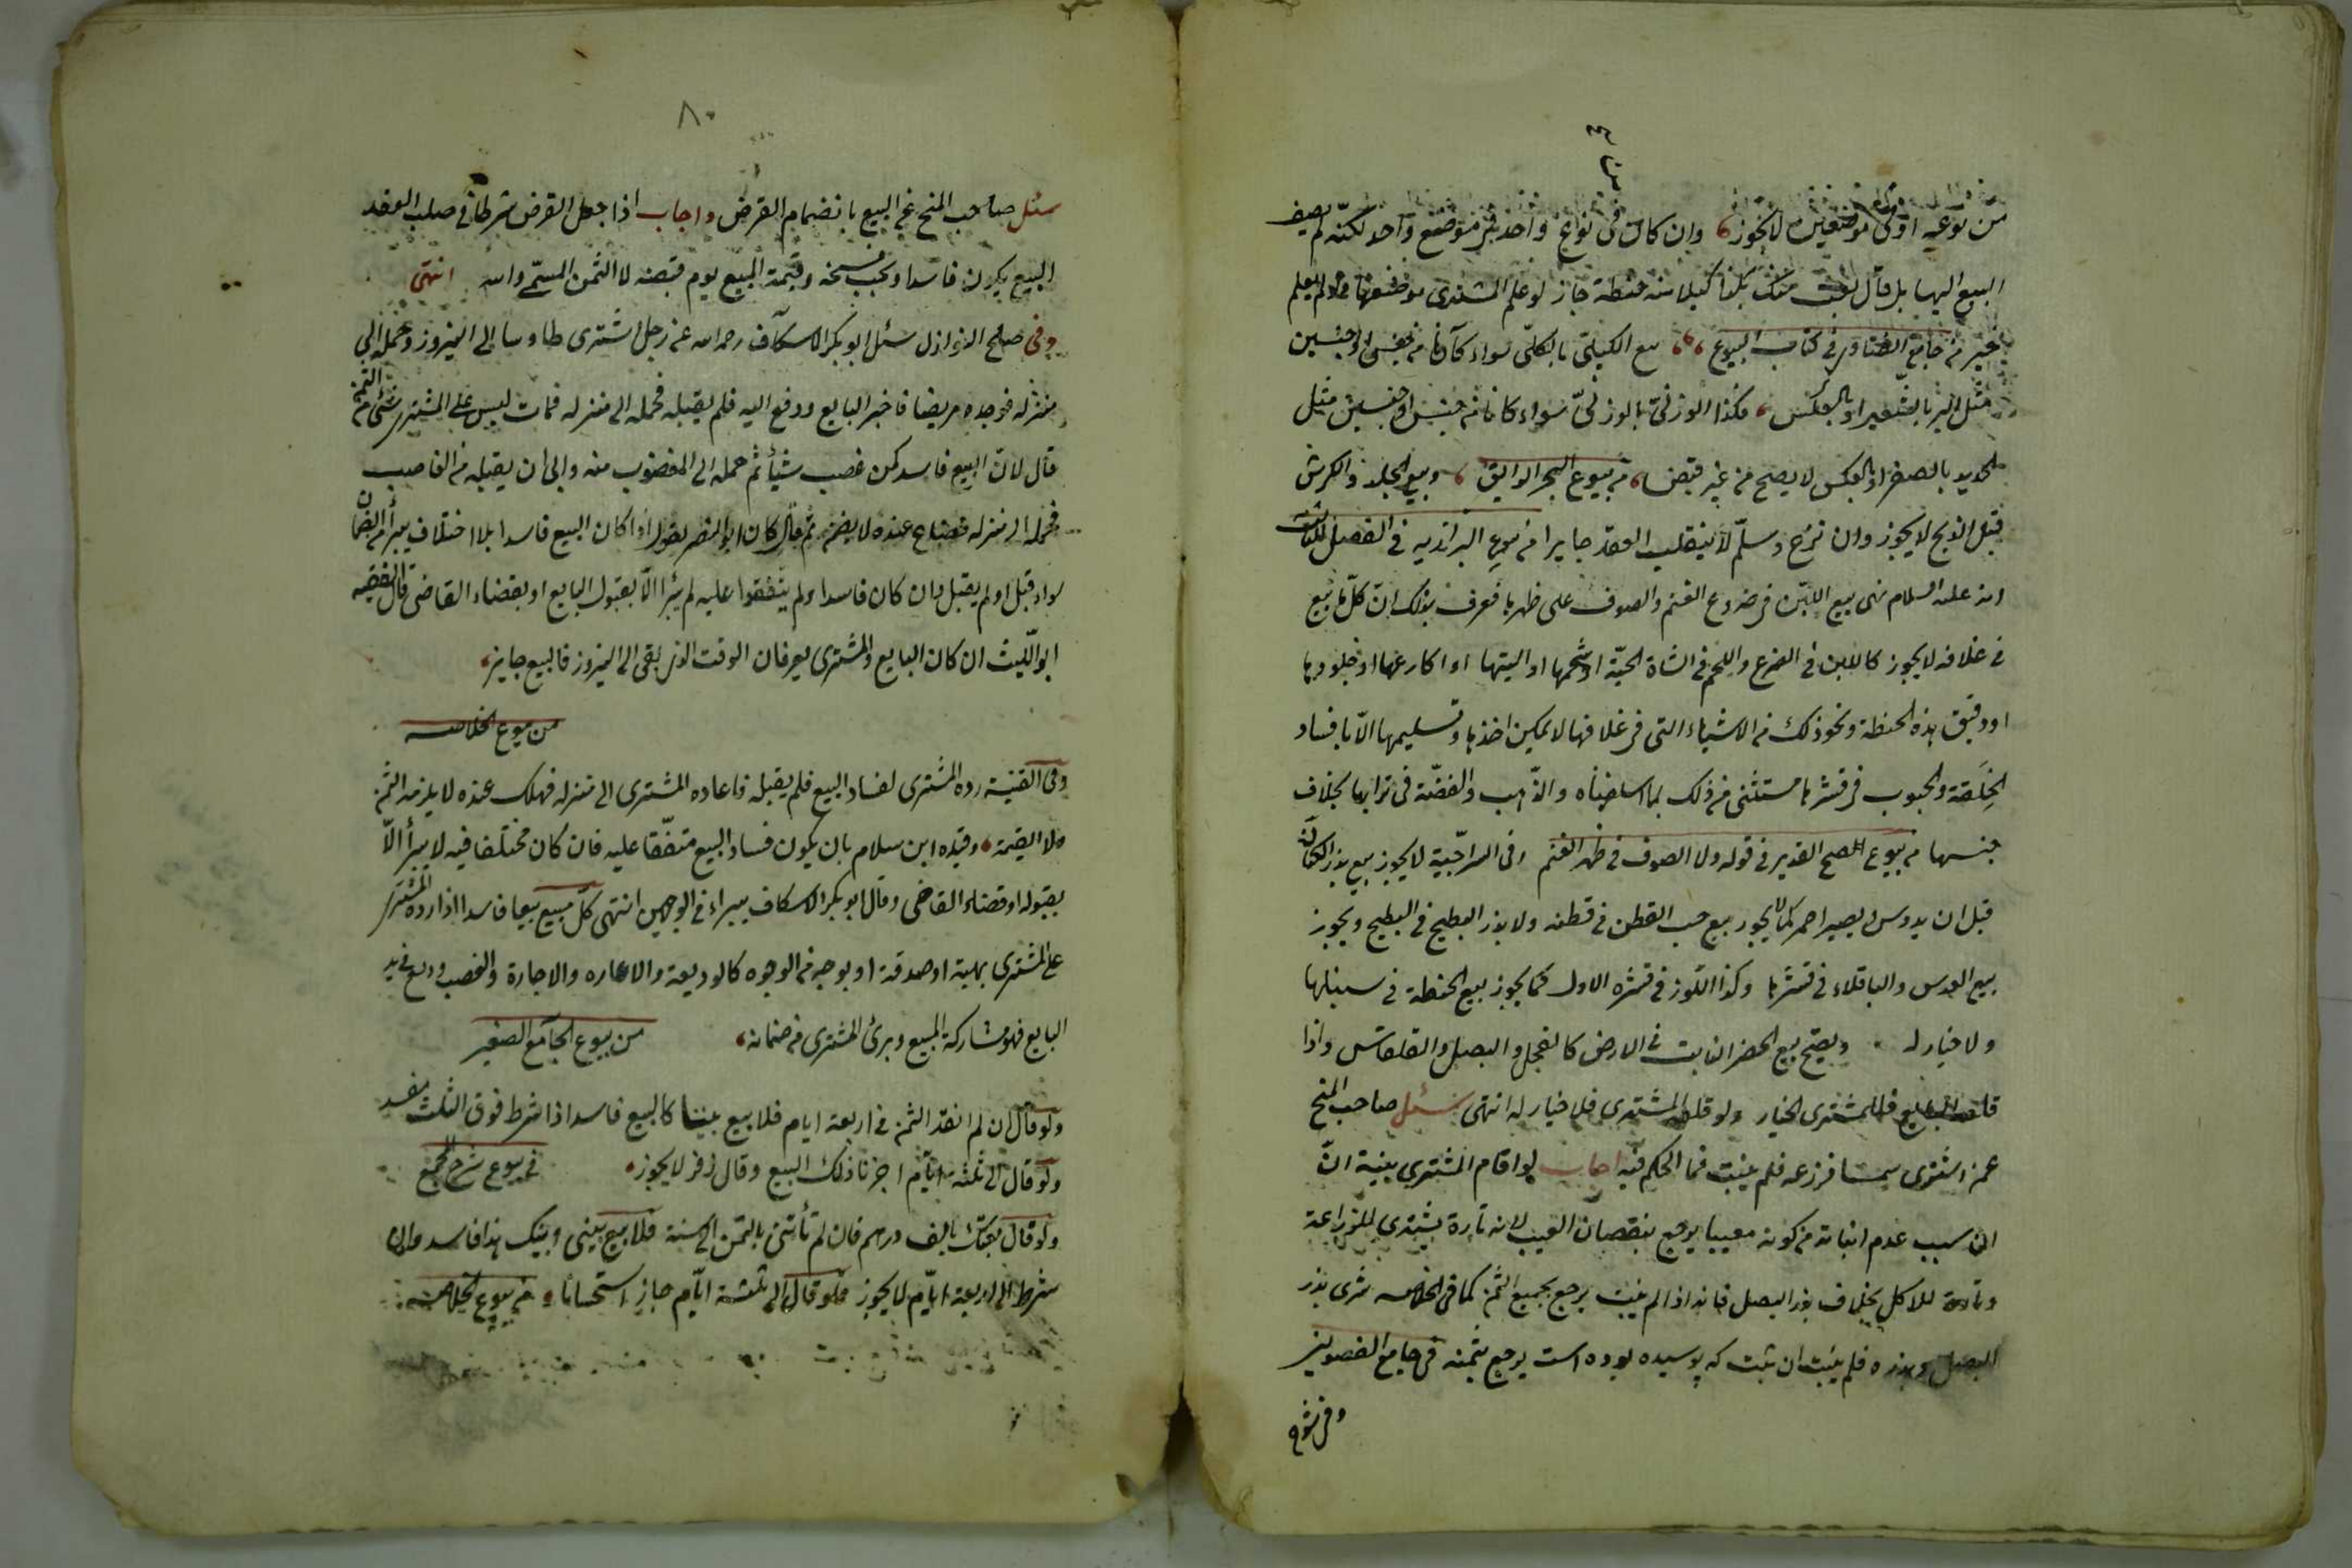 من نوعيه او في موضعين لا يجوز وان كان في نوع واحد في موضع واحد لكنه لم يضف
البيع اليها بل قال بعت منك بكذا كيلا منه حنطة جاز لو علم المشتري موضعها ولو لم يعلم
خير من جامع الفتاوى في كتاب البيوع بيع الكيلي بالكيلي سواء كانا من جنس او جنسين
مثل البر بالشعير او بالعكس وكذا الوزني بالوزني سواء كانا من جنس او جنسين مثل
الحديد بالصفر او بالعكس لا يصح من غير قبض من بيوع البحر الرايق وبيع الجلد والكرش
قبل الذبح لا يجوز وان نزع وسلم لا ينقلب العقد جايزا من بيوع البزازيه في الفصل الثالث
انه عليه السلام نهى بيع اللبن في ضروع الغنم والصوف على ظهرها فعرف بذلك ان كل ما بيع
في غلافه لا يجوز كاللبن في الضرع واللحم في الشاة الحية او شحمها او اليتها او اكارعها او جلودها
او دقيق هذه الحنطة ونحو ذلك من الاشياء التي في غلافها لا يمكن اخذها وتسليمها الا بافساد
الخلقة والحبوب في قشرها مستثنى من ذلك بما اسلفناه والذهب والفضة في ترابها بخلاف
جنسها من بيوع الفتح القدير في قوله ولا الصوف في ظهر الغنم وفي السراجية لا يجوز بيع بذر الكتان
قبل ان يدوس او يصير احمر كما لا يجوز بيع حب القطن في قطنه ولا بذر البطيخ في البطيخ ويجوز
بيع العدس والباقلاء في قشرها وكذا اللوز في قشره الاول كما يجوز بيع الحنطة في سنبلها
ولا خيار له ويصح بيع الخضر النابت في الارض كالفجل والبصل والقلقاس واذا
قلعه البايع فللمشتري الخيار ولو قلعه المشتري فلا خيار له انتهى سئل صاحب المنح
عمن اشترى فزرعه فلم ينبت فما الحكم فيه اجاب لو اقام المشتري بينة ان
ان سبب عدم انباته من كونه معيبا يرجع بنقصان العيب لانه تارة يشتري للزراعة
وتارة للاكل بخلاف بذر البصل فانه اذا لم ينبت يرجع بجميع الثمن كما في الخلاصه شرى بذر
البصل وبذره فلم ينبت ان ثبت كه پوسيده بوده است يرجع بثمنه في جامع الفصولين
٨٠
سئل صاحب المنح عن البيع بانضمام القرض واجاب اذا جعل القرض شرطا في صلب العقد
البيع يكون فاسدا ويجب فسخه وقيمة المبيع يوم قبضه لا الثمن المسمى والله انتهى
وفي صلح النوازل سئل ابو بكر الاسكاف رحمه الله عن رجل اشترى طاوسا الى النيروز وحمله الى
منزله فوجده مريضا فاخبر البايع ودفع اليه فلم يقبله فحمله الى منزله فمات ليس على المشتري شئ من الثمن
قال لان البيع فاسد كمن غصب شيأ ثم حمله الى المغصوب منه وابى ان يقبله من الغاصب
فحمله الى منزله فضاع عنده لا يضمن ثم قال كان ابو النصر يقول اذا كان البيع فاسدا بلا اختلاف يبرأ من الضمان
سواء قبل او لم يقبل وان كان فاسدا ولم يتفقوا عليه لم يبرأ الا بقبول البايع او بقضاء القاضي قال الفقيه
ابو الليث ان كان البايع والمشتري يعرفان الوقت الذي بقى الى النيروز فالبيع جايز
من بيوع الخلاصه
وفي القنية رده المشتري لفساد البيع فلم يقبله فاعاده المشتري الى منزله فهلك عنده لا يلزمه الثمن
ولا القيمة وقيده ابن سلام بان يكون فساد البيع متفقا عليه فان كان مختلفا فيه لا يبرأ الا
بقبوله او قضاء القاضي وقال ابو بكر الاسكاف يبراء في الوجهين انتهى كل مبيع بيعا فاسدا اذا رده المشتري
على المشتري بهبة او صدقة او بوجه من الوجوه كالوديعة والاعاره والاجارة والغصب ووقع في يد
البايع فهو متاركة المبيع وبرئ المشتري من ضمانه من بيوع الجامع الصغير
ولو قال ان لم انقد الثمن في اربعة ايام فلا بيع بيننا كان البيع فاسدا اذا شرط فوق الثلث
ولو قال الى ثلثة ايام اجزنا ذلك البيع وقال زفر لا يجوز في بيوع شرح المجمع
ولو قال بعتك بالف درهم فان لم تأتني بالثمن الى سنة فلا بيع بيني وبينك هذا فاسد وان
شرط الى اربعة ايام لا يجوز ولو قال الى ثلثة ايام جاز استحسانا من بيوع الخلاصه